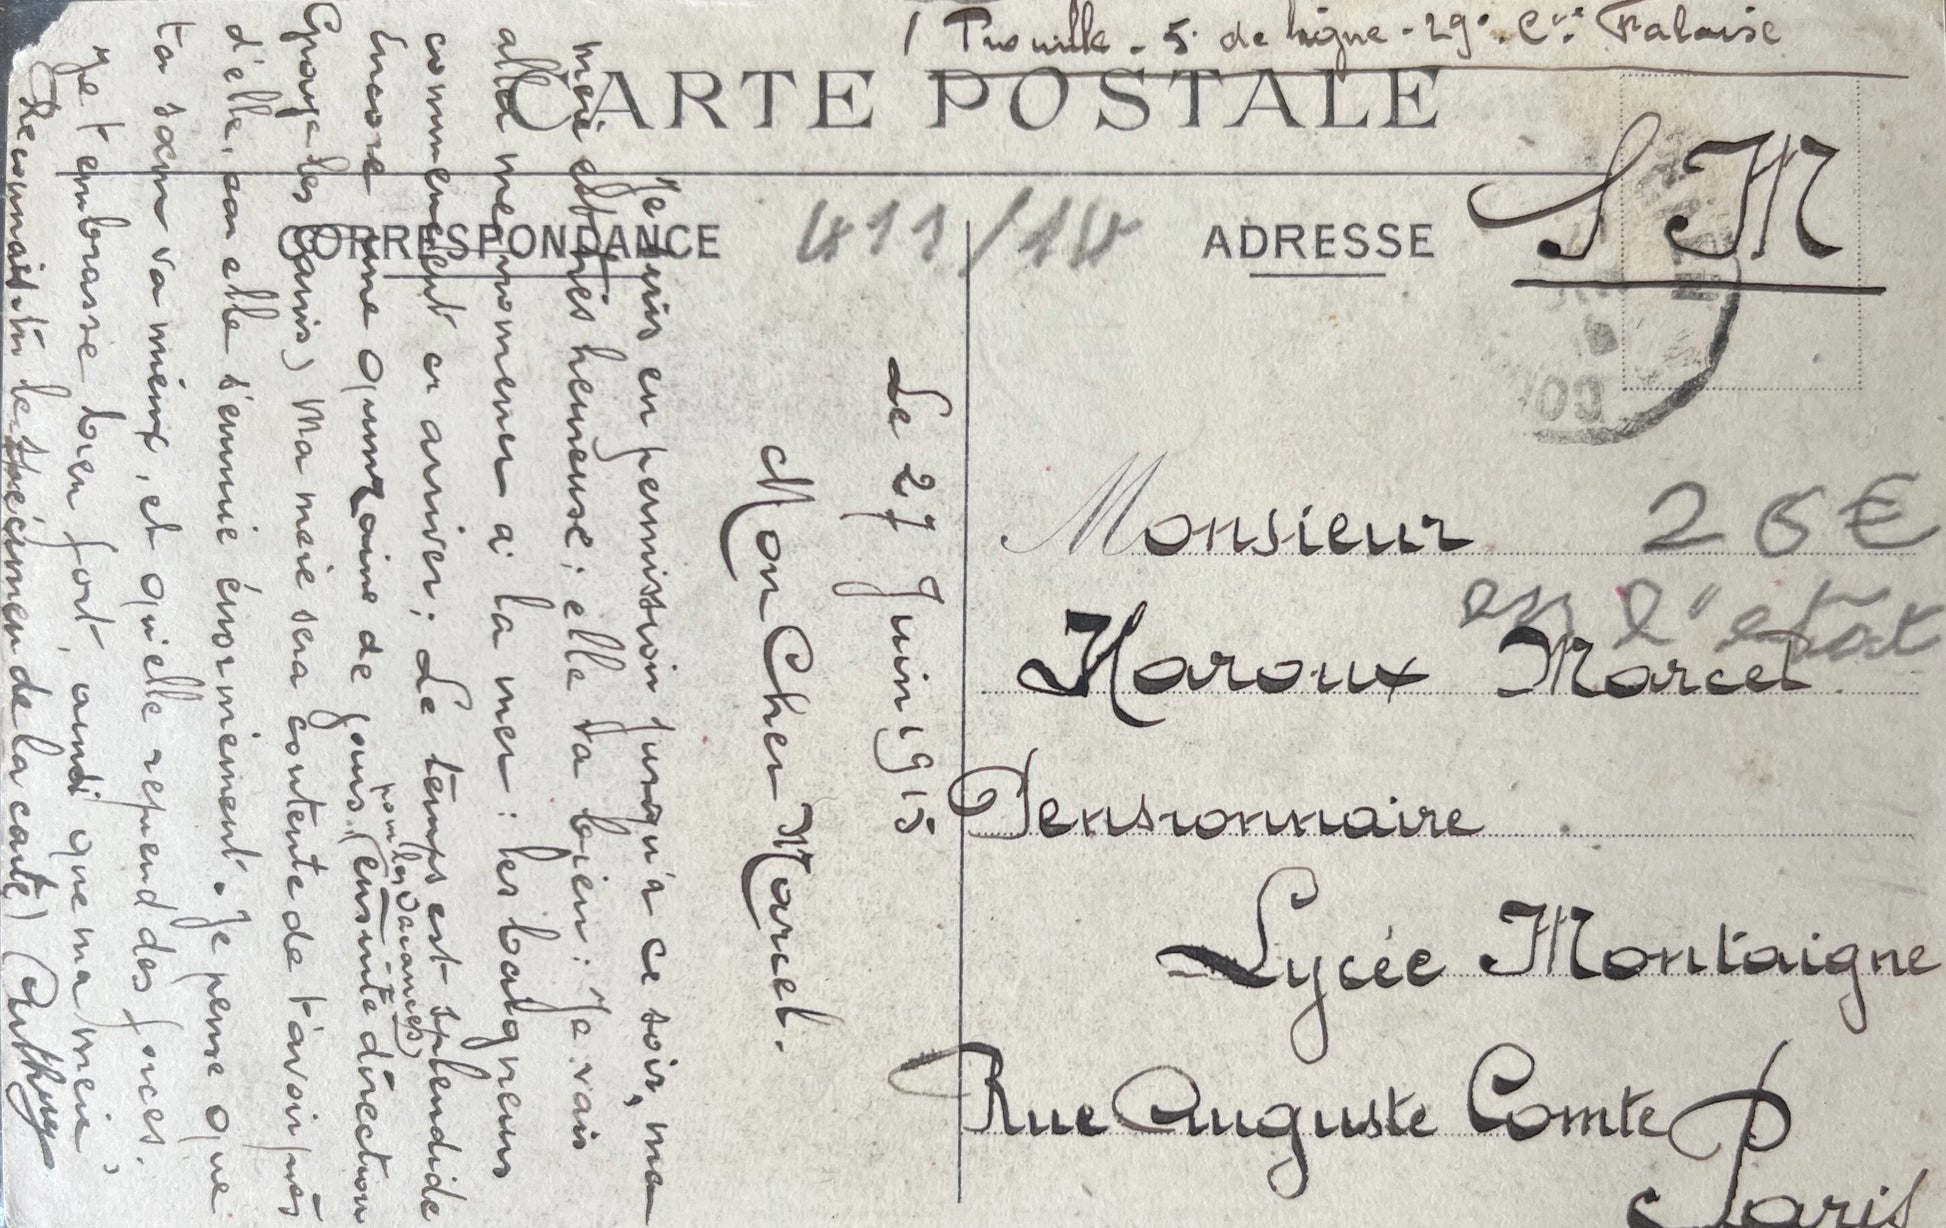 Trouville - 5e de ligne - 29e Cie Falaise
CARTE POSTALE
CORRESPONDANCE
ADRESSE
S M
411/14
26€
en l'état
Monsieur
Haroux Marcel
Pensionnaire
Lycée Montaigne
Rue Auguste Comte
Paris
Le 27 Juin 1915
Mon Cher Marcel.
Je suis en permission jusqu'à ce soir, ma
mère est très heureuse; elle va bien: Je vais
aller me promener à la mer: les baigneurs
commencent à arriver; Le temps est splendide
Encore une quinzaine de jours. (ensuite direction
pour les vacances)
les Ma mère sera contente de t'avoir près
d'elle, car elle s'ennuie énormément. Je pense que
ta sœur va mieux, et qu'elle reprend des forces.
Je t'embrasse bien fort, ainsi que ma mère,
le spécimen de la carte)